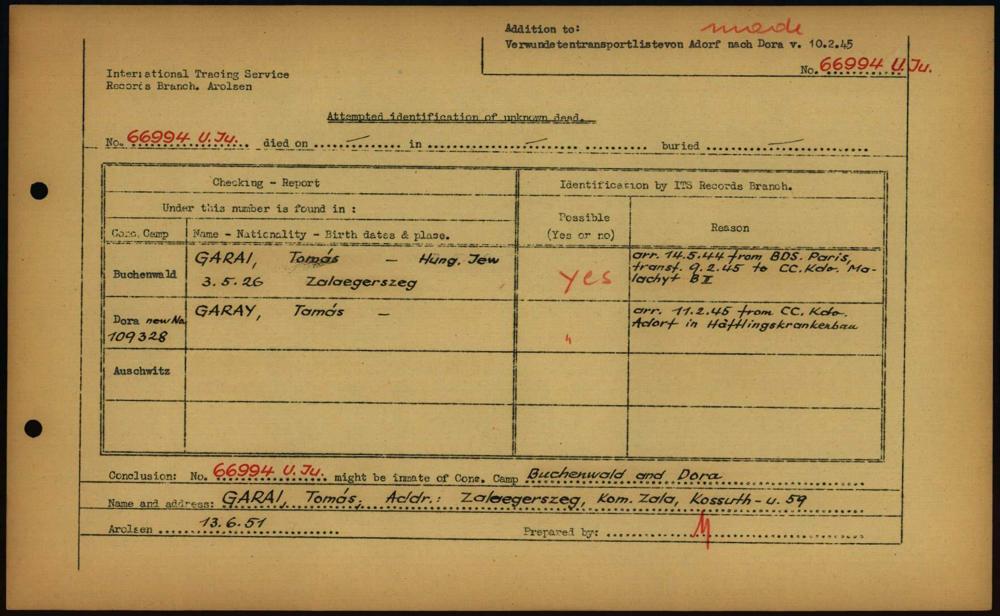 Addition to: made
Verwundetentransportliste von Adorf nach Dora v. 10.2.45
No. 66994 U. Ju.
International Tracing Service
Records Branch. Arolsen
Attempted identification of unknown dead.
No. 66994 U. Ju. died on — in — buried —
Checking - Report
Identification by ITS Records Branch.
Under this number is found in :
Possible
(Yes or no)
Reason
Conc. Camp
Name - Nationality - Birth dates & place.
Buchenwald
GARAI, Tomás — Hung. Jew
3.5.26 Zalaegerszeg
yes
arr. 14.5.44 from BDS. Paris,
transf. 9.2.45 to CC. Kdo. Ma-
lachyt B II
Dora new No.
109328
GARAY, Tamás —
"
arr. 11.2.45 from CC. Kdo.
Adorf in Häftlingskrankenbau
Auschwitz
Conclusion: No. 66994 U. Ju. might be inmate of Conc. Camp Buchenwald and Dora
Name and address: GARAI, Tomás, Addr.: Zalaegerszeg, Kom. Zala, Kossuth-u. 59
Arolsen 13.6.51
Prepared by: